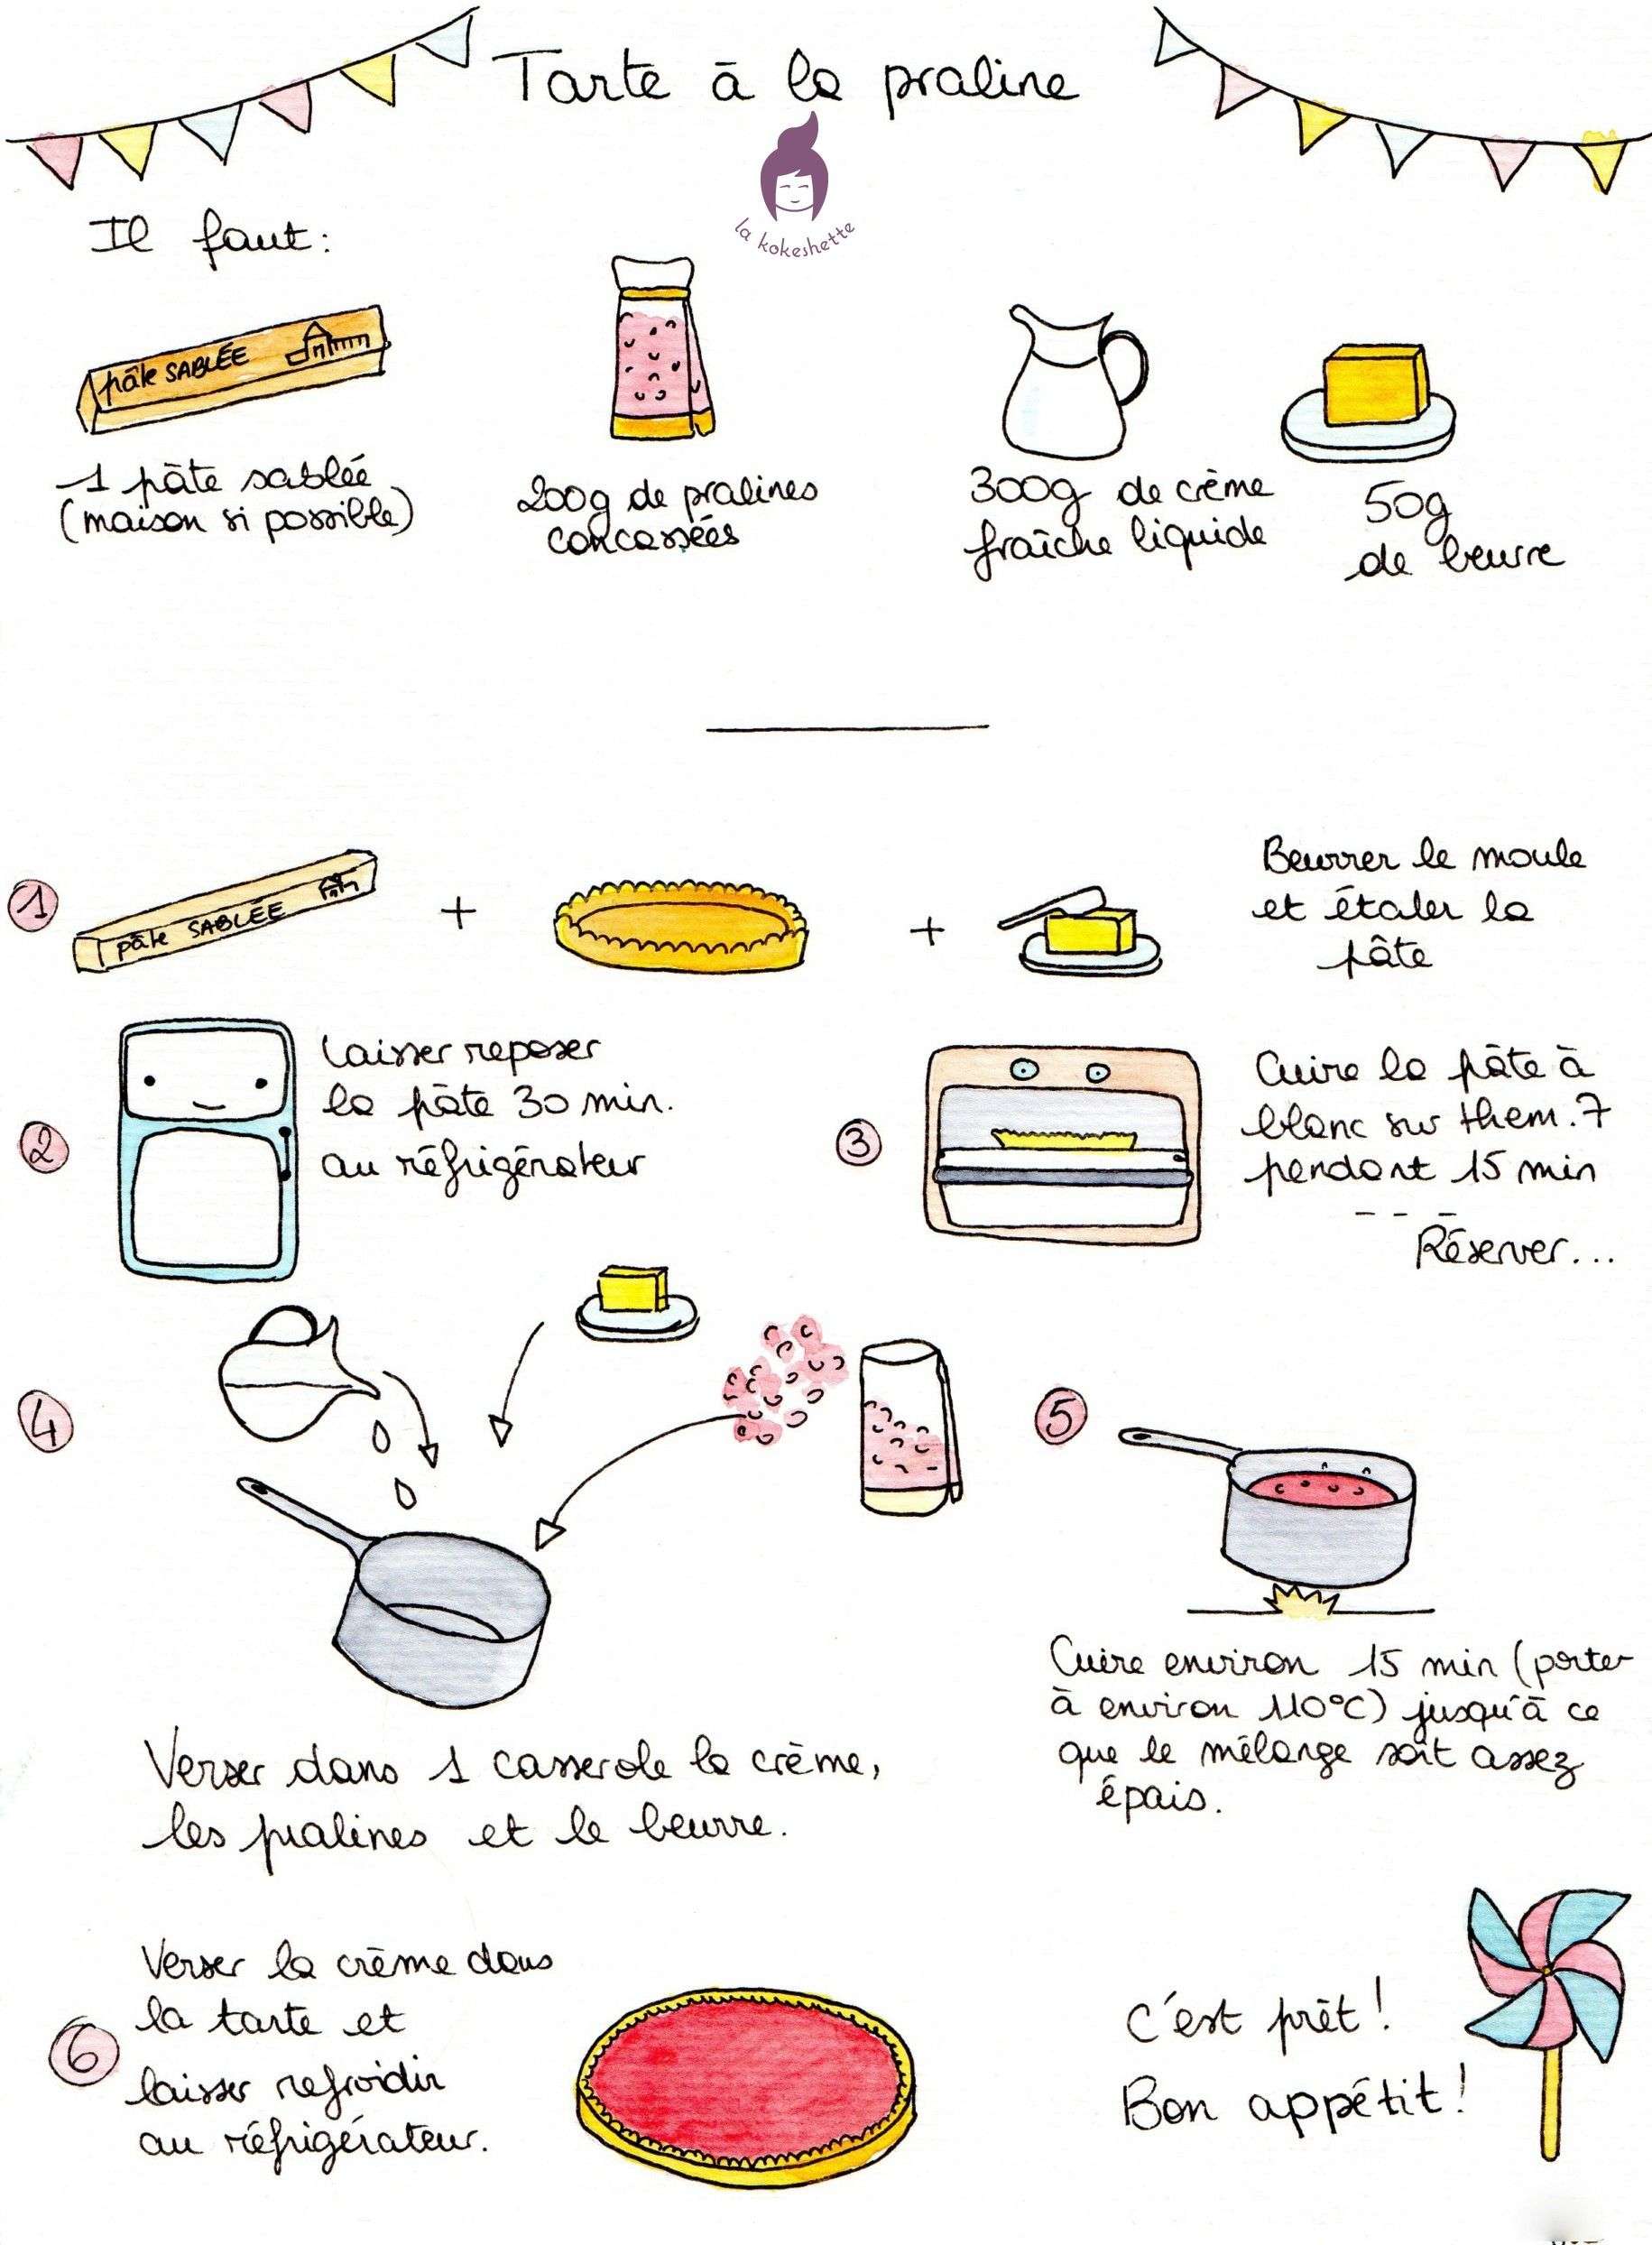 Tarte à la praline
la kokeshette
Il faut:
pâte SABLÉE
1 pâte sablée
(maison si possible)
200g de pralines
concassées
300g de crème
fraîche liquide
50g
de beurre
1
pâte SABLÉE
+
+
Beurrer le moule
et étaler la
pâte
2
Laisser reposer
la pâte 30 min.
au réfrigérateur
3
Cuire la pâte à
blanc sur them. 7
pendant 15 min
Réserver...
4
Verser dans 1 casserole la crème,
les pralines et le beurre.
5
Cuire environ 15 min (porter
à environ 110°C) jusqu'à ce
que le mélange soit assez
épais.
6
Verser la crème dans
la tarte et
laisser refroidir
au réfrigérateur.
C'est prêt!
Bon appétit!